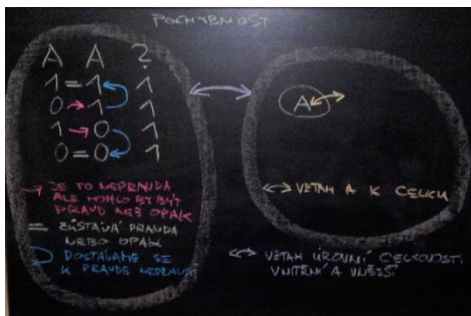 POCHYBNOST
A A ?
1 = 1 1
0 → 1 1
1 → 0 1
0 = 0 1
→ JE TO NEPRAVDA
ALE MOHLO BY BÝT
PRAVD NEB OPAK
= ZŮSTÁVÁ PRAVDA
NEBO OPAK
DOSTÁVÁME SE
K PRAVDE NEPRAVDY
A
↔ VZTAH A K CELKU
↔ VZTAH ÚROVNÍ CELKOVOSTI
VNITŘNÍ A VNĚJŠÍ